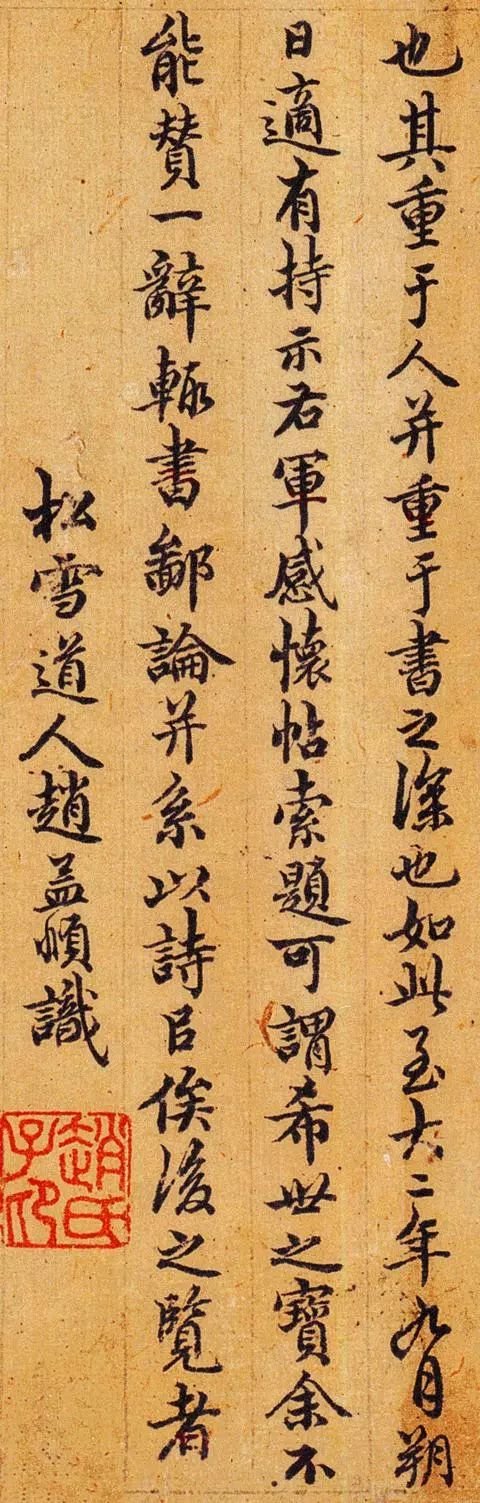 也其重于人并重于书之深也如此至大二年九月朔
日適有持示右軍感懷帖索題可謂希世之寶余不
能賛一辭輙書鄙論并系以詩㠯俟後之覽者
松雪道人趙孟頫識
趙氏子印